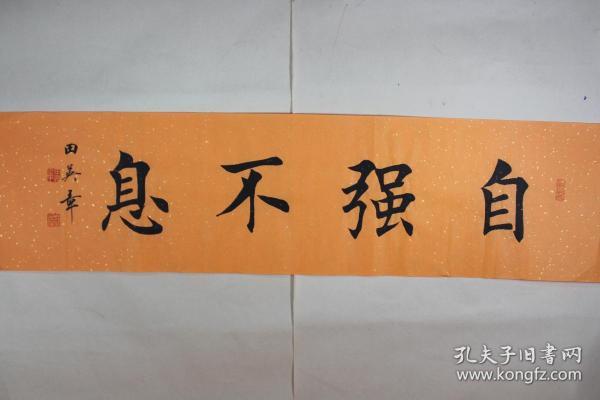 自强不息
田英章
孔夫子旧书网
www.kongfz.com